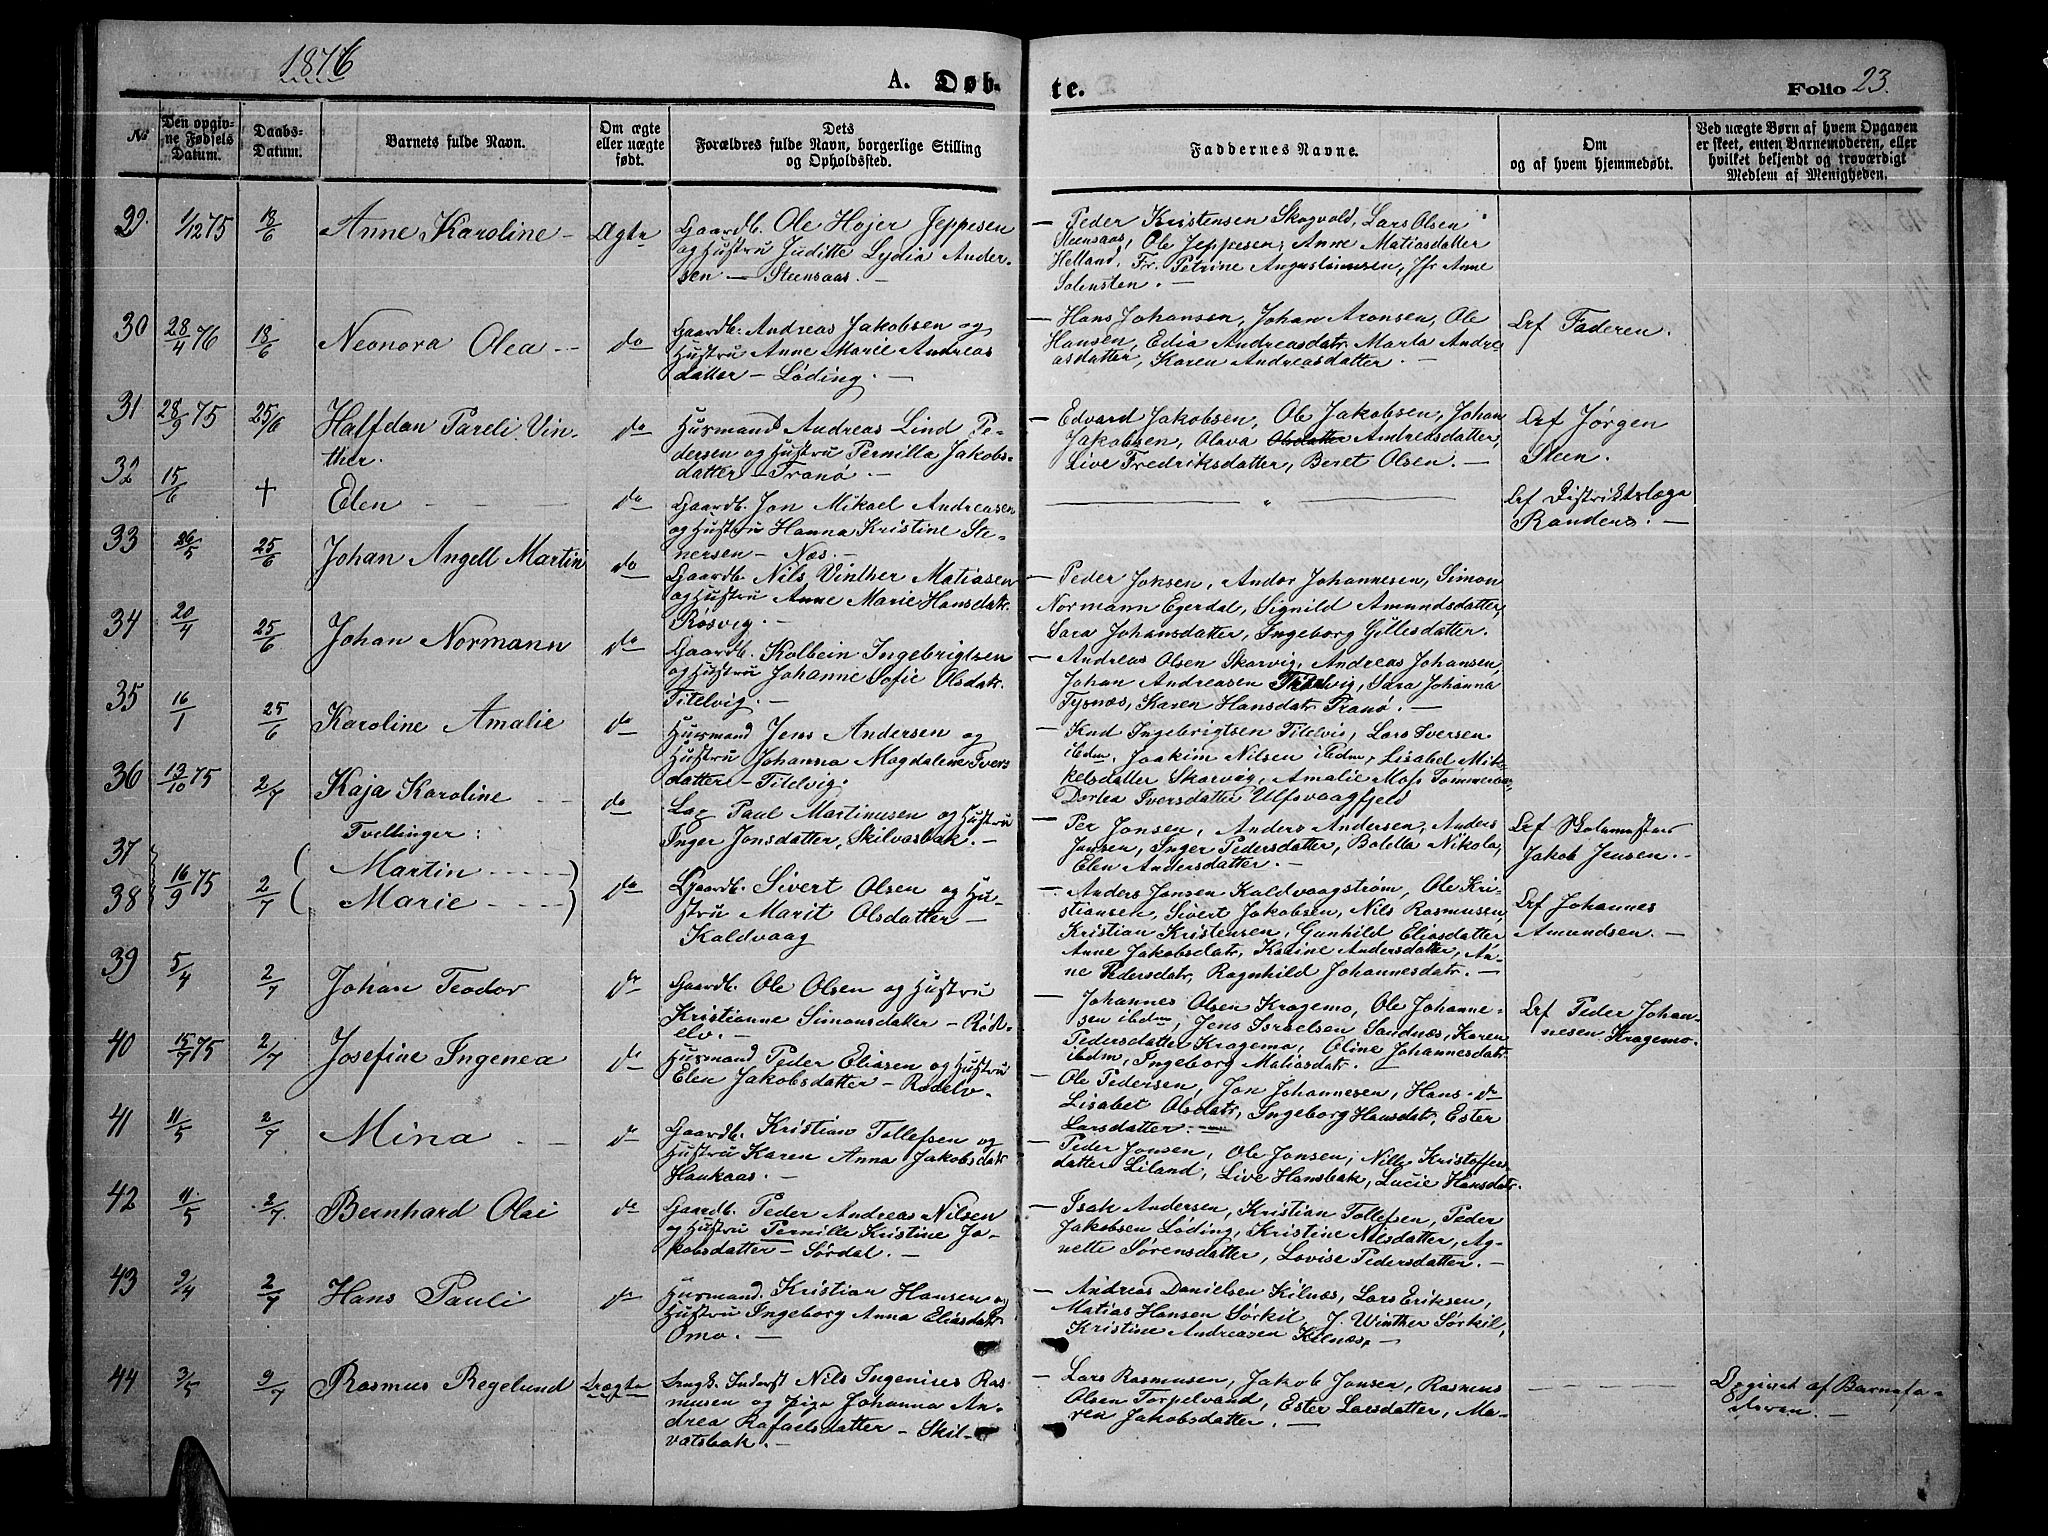 1876
A. Døb-
te.
Folio 23.
No
Den opgiv-
ne Fødsels
Datum.
Daabs-
Datum.
Barnets fulde Navn.
Om ægte
eller uægte
født.
Dets
Forældres fulde Navn, borgerlige Stilling
og Opholdssted.
Faddernes Navne.
Om
og af hvem hjemmedøbt.
Ved uægte Børn af hvem Opgaven
er skeet, enten Barnemoderen, eller
hvilket bekjendt og troværdigt
Medlem af Menigheden.
29. 1/12 75 18/6 Anne Karoline – Ægte
Gaardb. Ole Hojer Jeppesen
og Hustru Juditte Lydia Ander-
sen – Steensaas. –
– Peder Kristensen Skogvold, Lars Olsen
Steensaas, Ole Jeppesen, Anne Matiasdatter
Helland, Fr. Petrine Augustinusen, Jfr Anne
Solensten. –
30 28/4 76 18/6 Neonora Olea – do
Gaardb. Andreas Jakobsen og
Hustru Anne Marie Andreas
datter – Løding. –
– Hans Johansen, Johan Aronsen, Ole
Hansen, Edia Andreasdatr, Marta Andre
asdatter, Karen Andreasdatter. –
Faderen.
31 28/9 75 25/6 Halfdan Pareli Vin-
ther. do
Husmand Andreas Lind Pe-
dersen og Hustru Pernilla Jakobs-
datter – Tranø –
– Edvard Jakobsen, Ole Jakobsen, Johan
Jakobsen, Olava Olsdatter Andreasdatter,
Live Fredriksdatter, Beret Olsen. –
Jørgen
Steen.
32 15/6 + Elen – do
Gaardb. Jon Mikael Andreasen
og Hustru Hanna Kristine Ste-
nersen – Næs. –
"
Distriktslæge
Randers. –
33 26/5 25/6 Johan Angell Martin do
Gaardb. Nils Vinther Matiasen
og Hustru Anne Marie Hansdatr.
Røsvig. –
– Peder Jonsen, Andor Johannesen, Simon
Normann Egerdal, Signild Amundsdatter,
Sara Johansdatter, Ingeborg Gillesdatter.
34 20/4 25/6 Johan Normann do
Gaardb. Kolbein Ingebrigtsen
og Hustru Johanne Sofie Olsdatr.
Titelvig. –
– Andreas Olsen Skarvig, Andreas Johansen,
Johan Andreasen Titelvig, Sara Johanna
Tysnæs, Karen Hansdatr Tranø. –
35 16/1 25/6 Karoline Amalie do
Husmand Jens Andersen og
Hustru Johanna Magdalene Ivers
datter – Titelvig.
– Knd Ingebrigtsen Titelvig, Lars Iversen
ibdm, Joakim Nilsen ibdm, Lisabet Mik-
kelsdatter Skarvig, Amalie Moss
Dorlea Iversdatter Ulfsvaagfjeld
36 13/10 75 2/7 Kaja Karoline do
Lap Paul Martinusen og Hustru
Inger Jonsdatter, Skilvasbak. –
– Per Jonsen, Anders Andersen, Anders
Jonsen, Inger Pedersdatter, Boletta Nikola,
Elen Andersdatter. –
Jakob Jensen. –
Tvillinger:
37 Martin
38 16/9 75 2/7 Marie do
Gaardb. Sivert Olsen og Hu-
stru Marit Olsdatter –
Kaldvaag
– Anders Jonsen Kaldvaagstrøm, Ole Kri-
stiansen, Sivert Jakobsen, Nils Rasmusen,
Kristian Kristensen, Gunhild Eliasdatter
Anne Jakobsdatr, Karine Andersdatter, An-
ne Pedersdatr, Ragnhild Johannesdatr. –
Johannes
Amundsen. –
39 5/4 2/7 Johan Teodor do
Gaardb. Ole Olsen og Hustru
Kristianne Simonsdatter – Rød-
elv. –
– Johannes Olsen Kragemo, Ole Johanne-
sen ibdm, Jens Israelsen Sandnæs, Karen
Pedersdatter Kragemo, Oline Johannesdatr
ibdm, Ingeborg Matiasdatr. –
Peder Johan-
nesen Kragemo.
40 15/7 75 2/7 Josefine Ingenea do
Husmand Peder Eliasen og Hustru
Elen Jakobsdatter – Rødelv.
– Ole Pedersen, Jon Johannesen, Hans do
Lisabet Olsdatr, Ingeborg Hansdatr, Ester
Larsdatter. –
41 11/5 2/7 Mina do
Gaardb. Kristian Tollefsen og
Hustru Karen Anna Jakobsdatr
Haukaas. –
– Peder Jonsen, Ole Jonsen, Nille Kristoffers
datter Liland, Live Hansbak, Lucie Hansdatr.
42 11/5 2/7 Bernhard Olai do
Gaardb. Peder Andreas Nilsen
og Hustru Pernille Kristine Ja-
kobsdatter – Sørdal. –
– Isak Andersen, Kristian Tollefsen, Peder
Jakobsen Løding, Kristine Nilsdatter, Ag-
nette Sørensdatter, Lovise Pedersdatter. –
43 9/4 2/7 Hans Pauli do
Husmand. Kristian Hansen og
Hustru Ingeborg Anna Eliasdatr
Omo. –
– Andreas Danielsen Kilnæs, Lars Eriksen,
Matias Hansen Sørkil, J. Winther Sørkil,
Kristine Andreasen Kilnæs. –
44 3/5 9/7 Rasmus Regelund Uægte
Ungk. Inderst Nils Ingenius Ras-
musen og Pige Johanna An-
drea Rafaelsdatter – Skil-
vatsbak. –
– Lars Rasmusen, Jakob Jonsen, Rasmus
Olsen Torpelvand, Ester Larsdatter, Ma-
ren Jakobsdatter. –
Opgivet af Barnefa-
deren. –